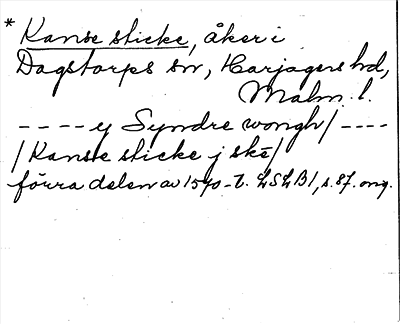 * Kanse sticke, åker i
Dagstorps sn, Harjagers hd,
Malm. l.
---- ey Syndre wongh/ ----
/Kanse sticke j skē/
förra delen av 1570-t. LSLB1, s. 87. orig.